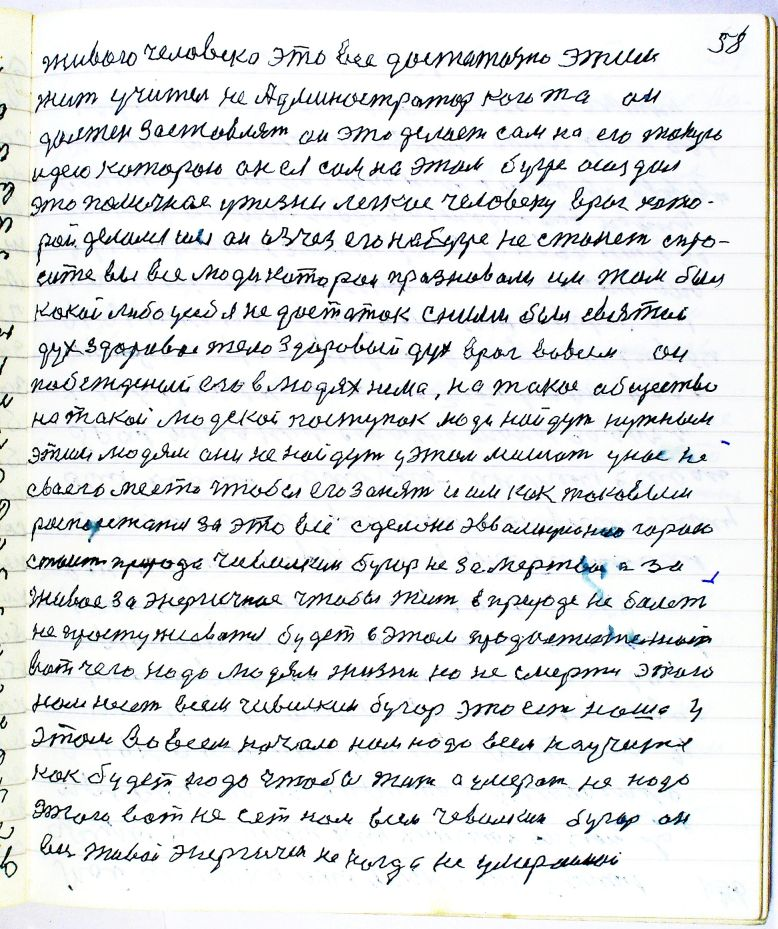 58
живого человека это все достаточно этим
жит учител не Администратор кого та он
должен заставлят он это делает сам на его такую
идею которою он ел сам на этом бугре создал
это помочное у жизни легкое человеку враг кото-
рой делами он на бугре не станет спро-
сите вы все люди которои празновали им там был
какой либо ущеб я не достаток с ними был святой
дух здоровое тело здоровый дух враг вовсем он
побежденой его в людях нема, на такое общество
на такой людской поступок люди найдут нужным
этим людям они не найдут у этом мешат у нас не
своего место чтобы его занят и им как таковыми
распоряжатя за это всё сделоно эвалюционно горою
стоит природа чивилкин бугор не за мертвое а за
живое за энергичное чтобы жит в природе не болет
не простуживатя будет в этом
вот чего надо людям жизни но не смерти этого
нам несет всем чивилкин бугор это ест наше у
этом во всем начало нам надо всем научится
как будет надо чтобы жит а умерат не надо
этого вот не сет нам всем чевилкин бугор он
вец живой энергичен не когда не умераемой